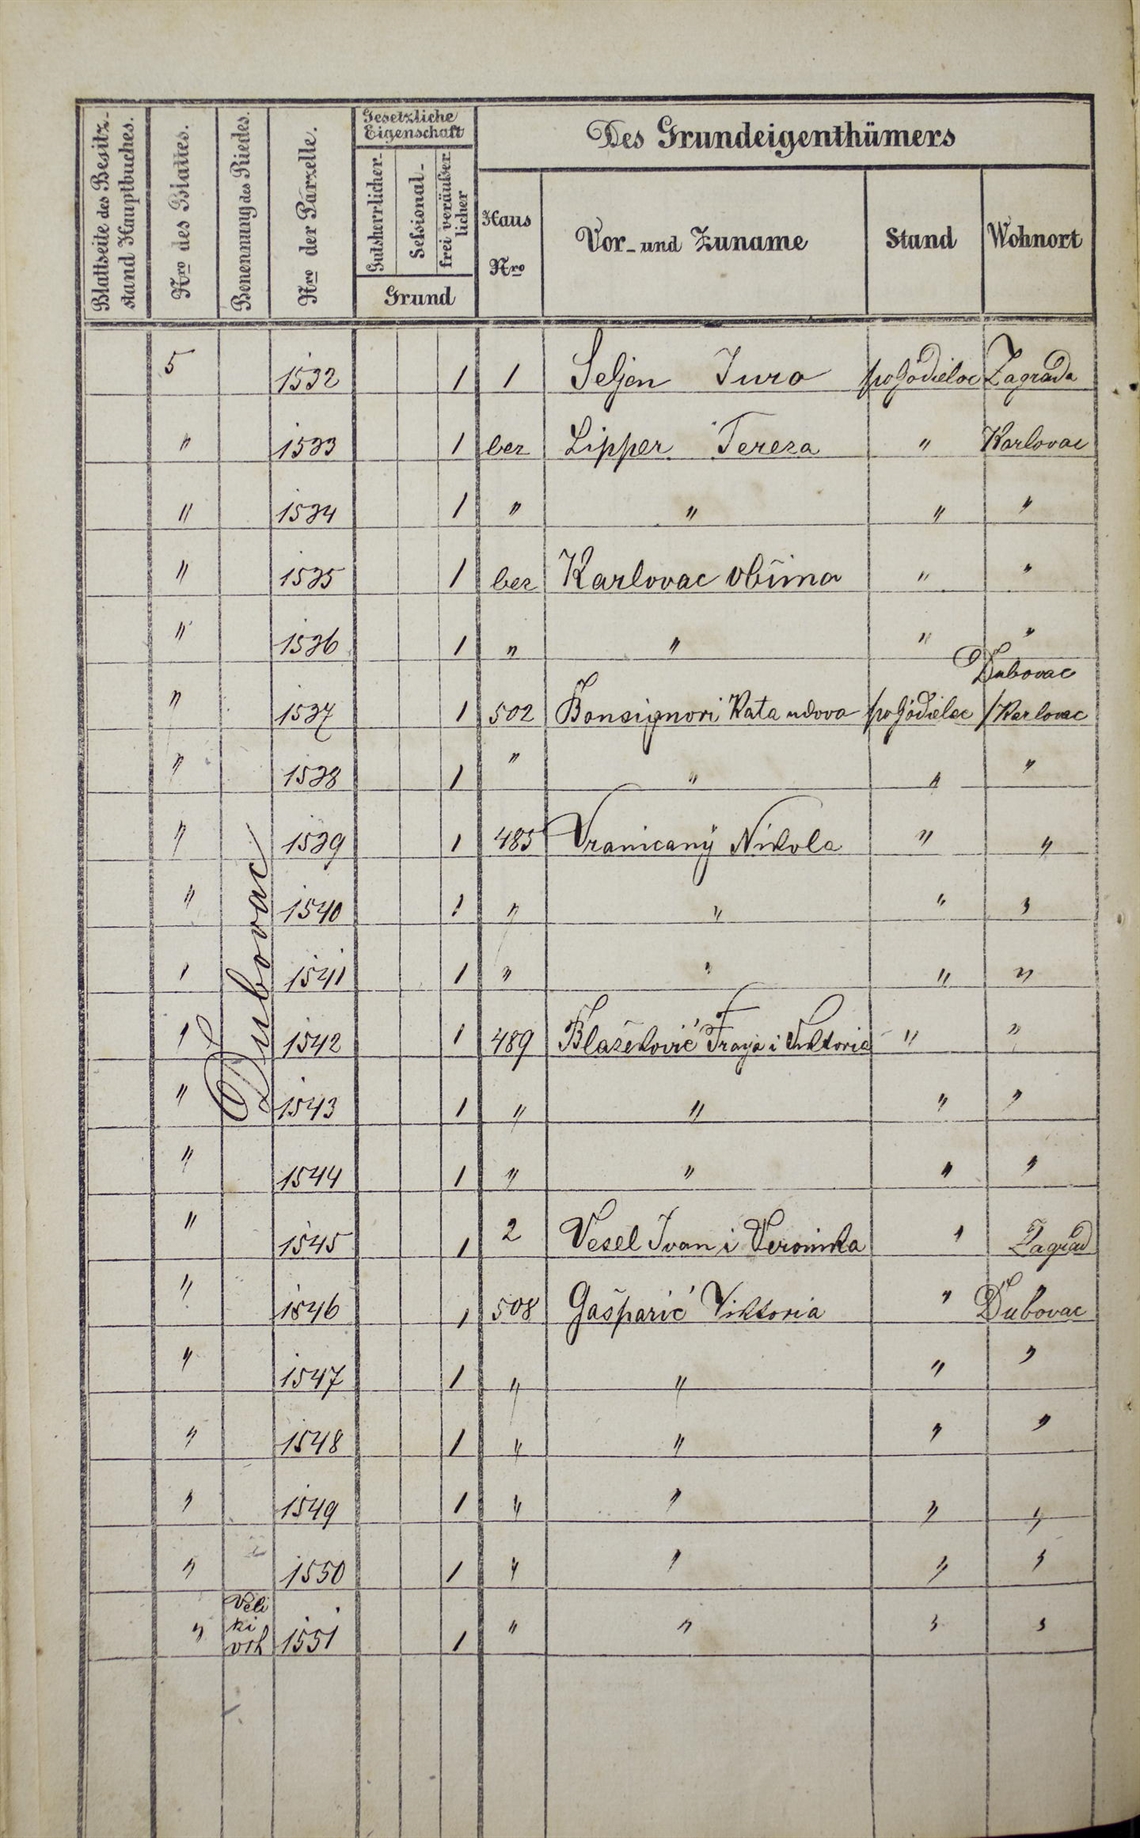 Blattseite des Besitz-
stand Hauptbuches.
Nro des Blattes.
Benennung des Riedes.
Nro der Parzelle.
Gesetzliche
Eigenschaft
Gutsherrlicher
Sessional-
frei veräußer
licher
Grund
Des Grundeigenthümers
Haus
Nro
Vor- und Zuname
Stand
Wohnort
5 1532 1 1 Seljan Juro Zagrada
" 1533 1 bez Lipper Tereza " Karlovac
" 1534 1 " " " "
" 1535 1 bez Karlovac občina " "
" 1536 1 " " " "
Dubovac
" 1537 1 502 Bonsignori Kata udova /Karlovac
" 1538 1 " " " "
" 1539 1 485 Vranicanÿ Nikola " "
Dubovac
" 1540 1 " " " "
" 1541 1 " " " "
" 1542 1 489 Blašković Franja i Viktoria " "
" 1543 1 " " " "
" 1544 1 " " " "
" 1545 1 2 Vesel Ivan i Veronika " Zagrad
" 1546 1 508 Gašparić Viktoria " Dubovac
" 1547 1 " " " "
" 1548 1 " " " "
" 1549 1 " " " "
" 1550 1 " " " "
Veli
ki
vrh
" 1551 1 " " " "